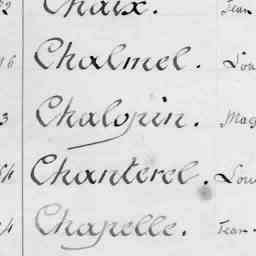 2 Chaix. Jean
16 Chalmel. Lou
3 Chalopin. Mag
Chanterel. Lou
Chapelle. Jean